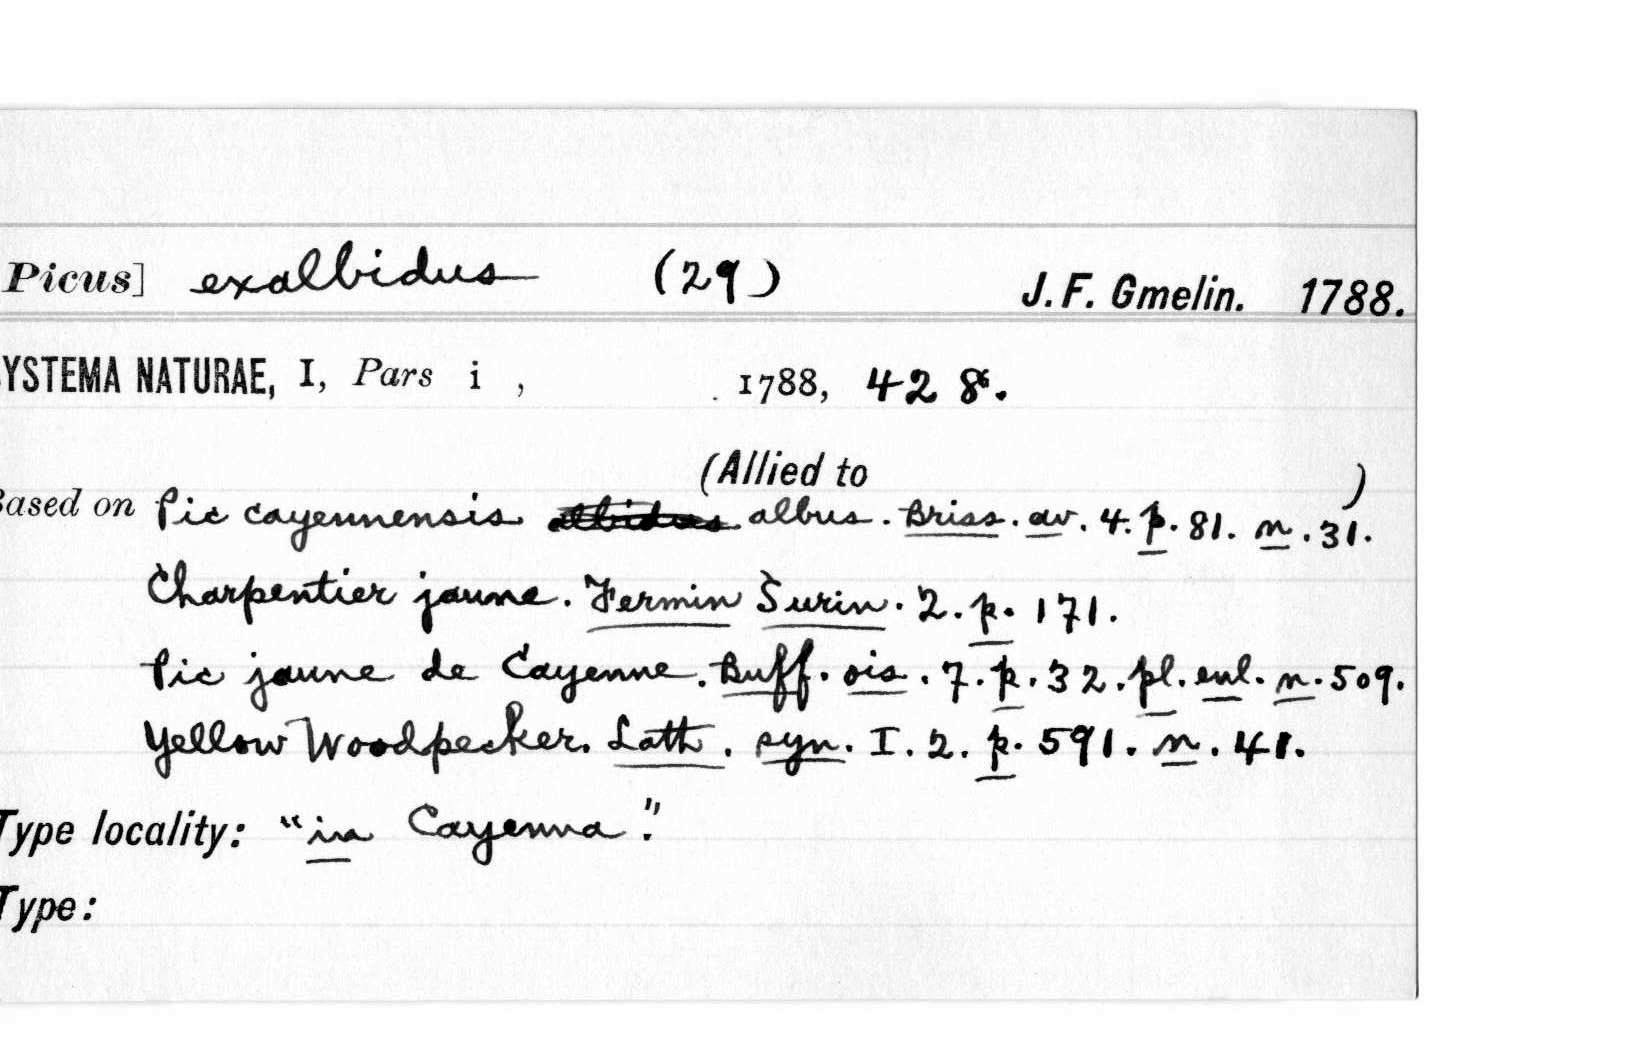 Picus] exalbidus (29) J. F. Gmelin. 1788.
YSTEMA NATURAE, I, Pars i , . 1788, 428.
(Allied to )
Based on Pic cayennensis albidus albus. Briss. av. 4. p. 81. n. 31.
Charpentier jaune. Fermin Surin. 2. p. 171.
Pic jaune de Cayenne. Buff. ois. 7. p. 32. pl. enl. n. 509.
Yellow Woodpecker. Lath. syn. I. 2. p. 591. n. 41.
Type locality: "in Cayenna."
Type: